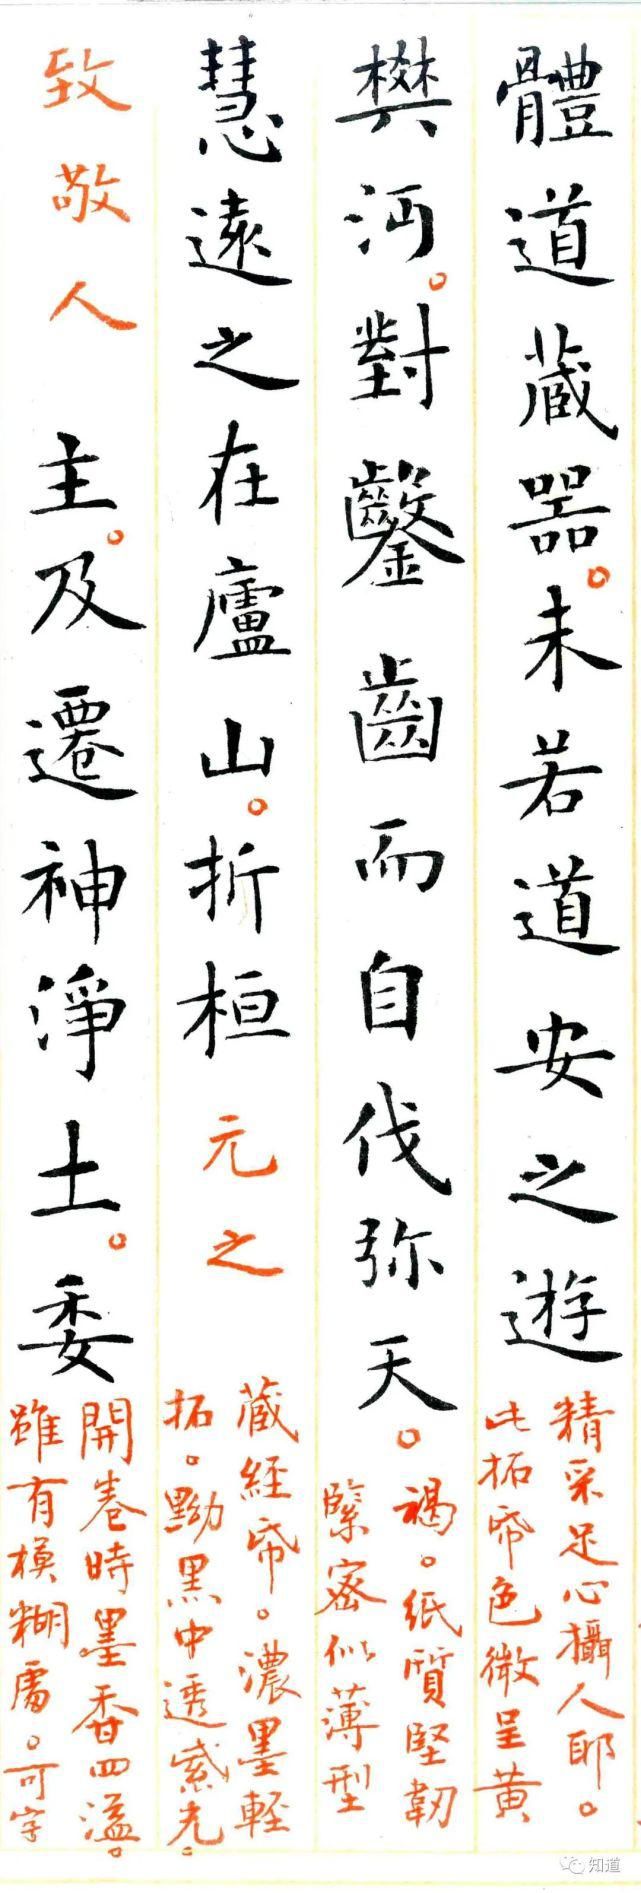 體道藏器。未若道安之遊
精采足心攝人耶。
此拓帋色微呈黃
樊沔。對鑿齒而自伐弥天。
褐。纸質堅韌
緊密似薄型
慧遠之在廬山。折桓元之
藏經帋。濃墨輕
拓。黝黑中透紫光。
致敬人主。及遷神淨土。委
開卷時墨香四溢。
雖有模糊處。可字
知道